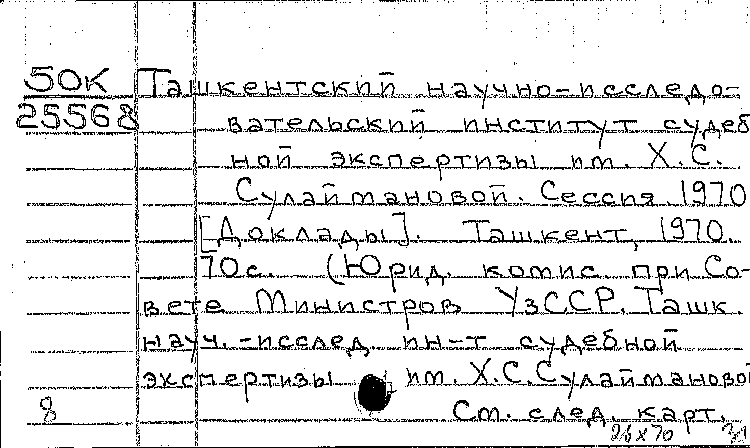 50К Ташкентский научно-исследо-
25568 вательский институт судеб
ной экспертизы им. Х.С.
Сулаймановой. Сессия. 1970
[Доклады]. Ташкент, 1970.
70с. (Юрид. комис. при Со-
вете Министров УзССР. Ташк.
науч.-исслед. ин-т судебной
экспертизы им. Х.С.Сулаймановой
8 См. след. карт.
26х70 31